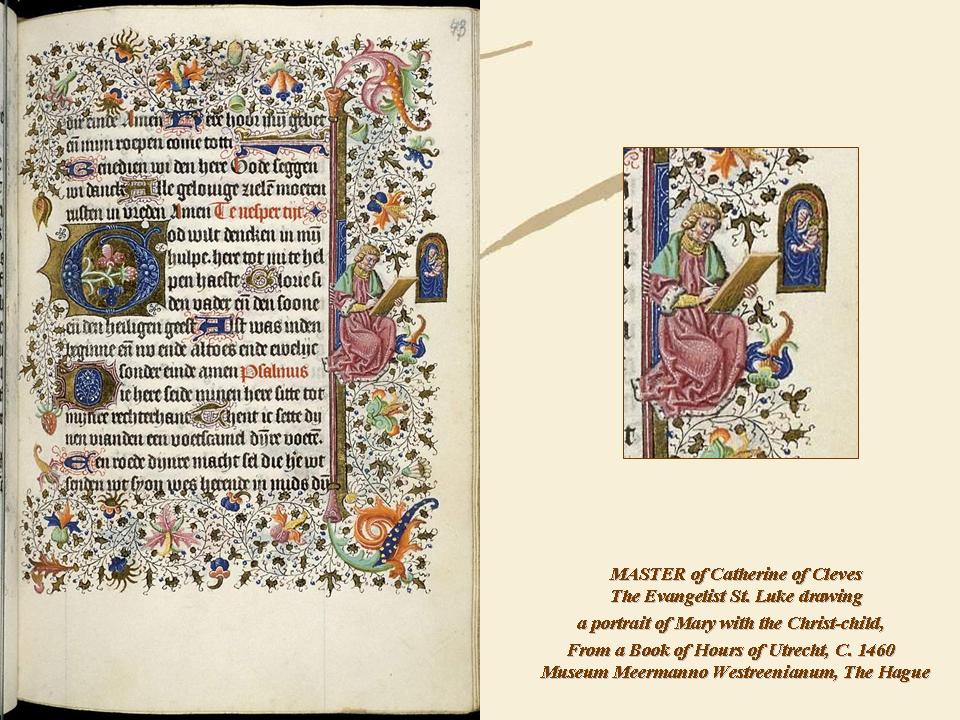 43
die einde Amen Here hoort mijn gebet
eñ mijn roepen come totti
Benedien wi den here Gode seggen
wi danck Alle gelouige zielē moeten
rusten in vreden Amen Te vesper tijt
God wilt dencken in mijn
hulpe. here tot mi te hel
pen haeste Glorie si
den vader eñ den soone
en den heiligen geest Alst was inden
beginne eñ nv ende altoes ende ewelijc
sonder einde amen Psalmus
Die here seide minen here sitte tot
mijnre rechterhant Thent ic sette dij
nen vianden een voetscamel dijnre voetē.
Een roede dijnre macht sel die hēe wt
senden wt syon wes herende in mids dij
MASTER of Catherine of Cleves
The Evangelist St. Luke drawing
a portrait of Mary with the Christ-child,
From a Book of Hours of Utrecht, C. 1460
Museum Meermanno Westreenianum, The Hague